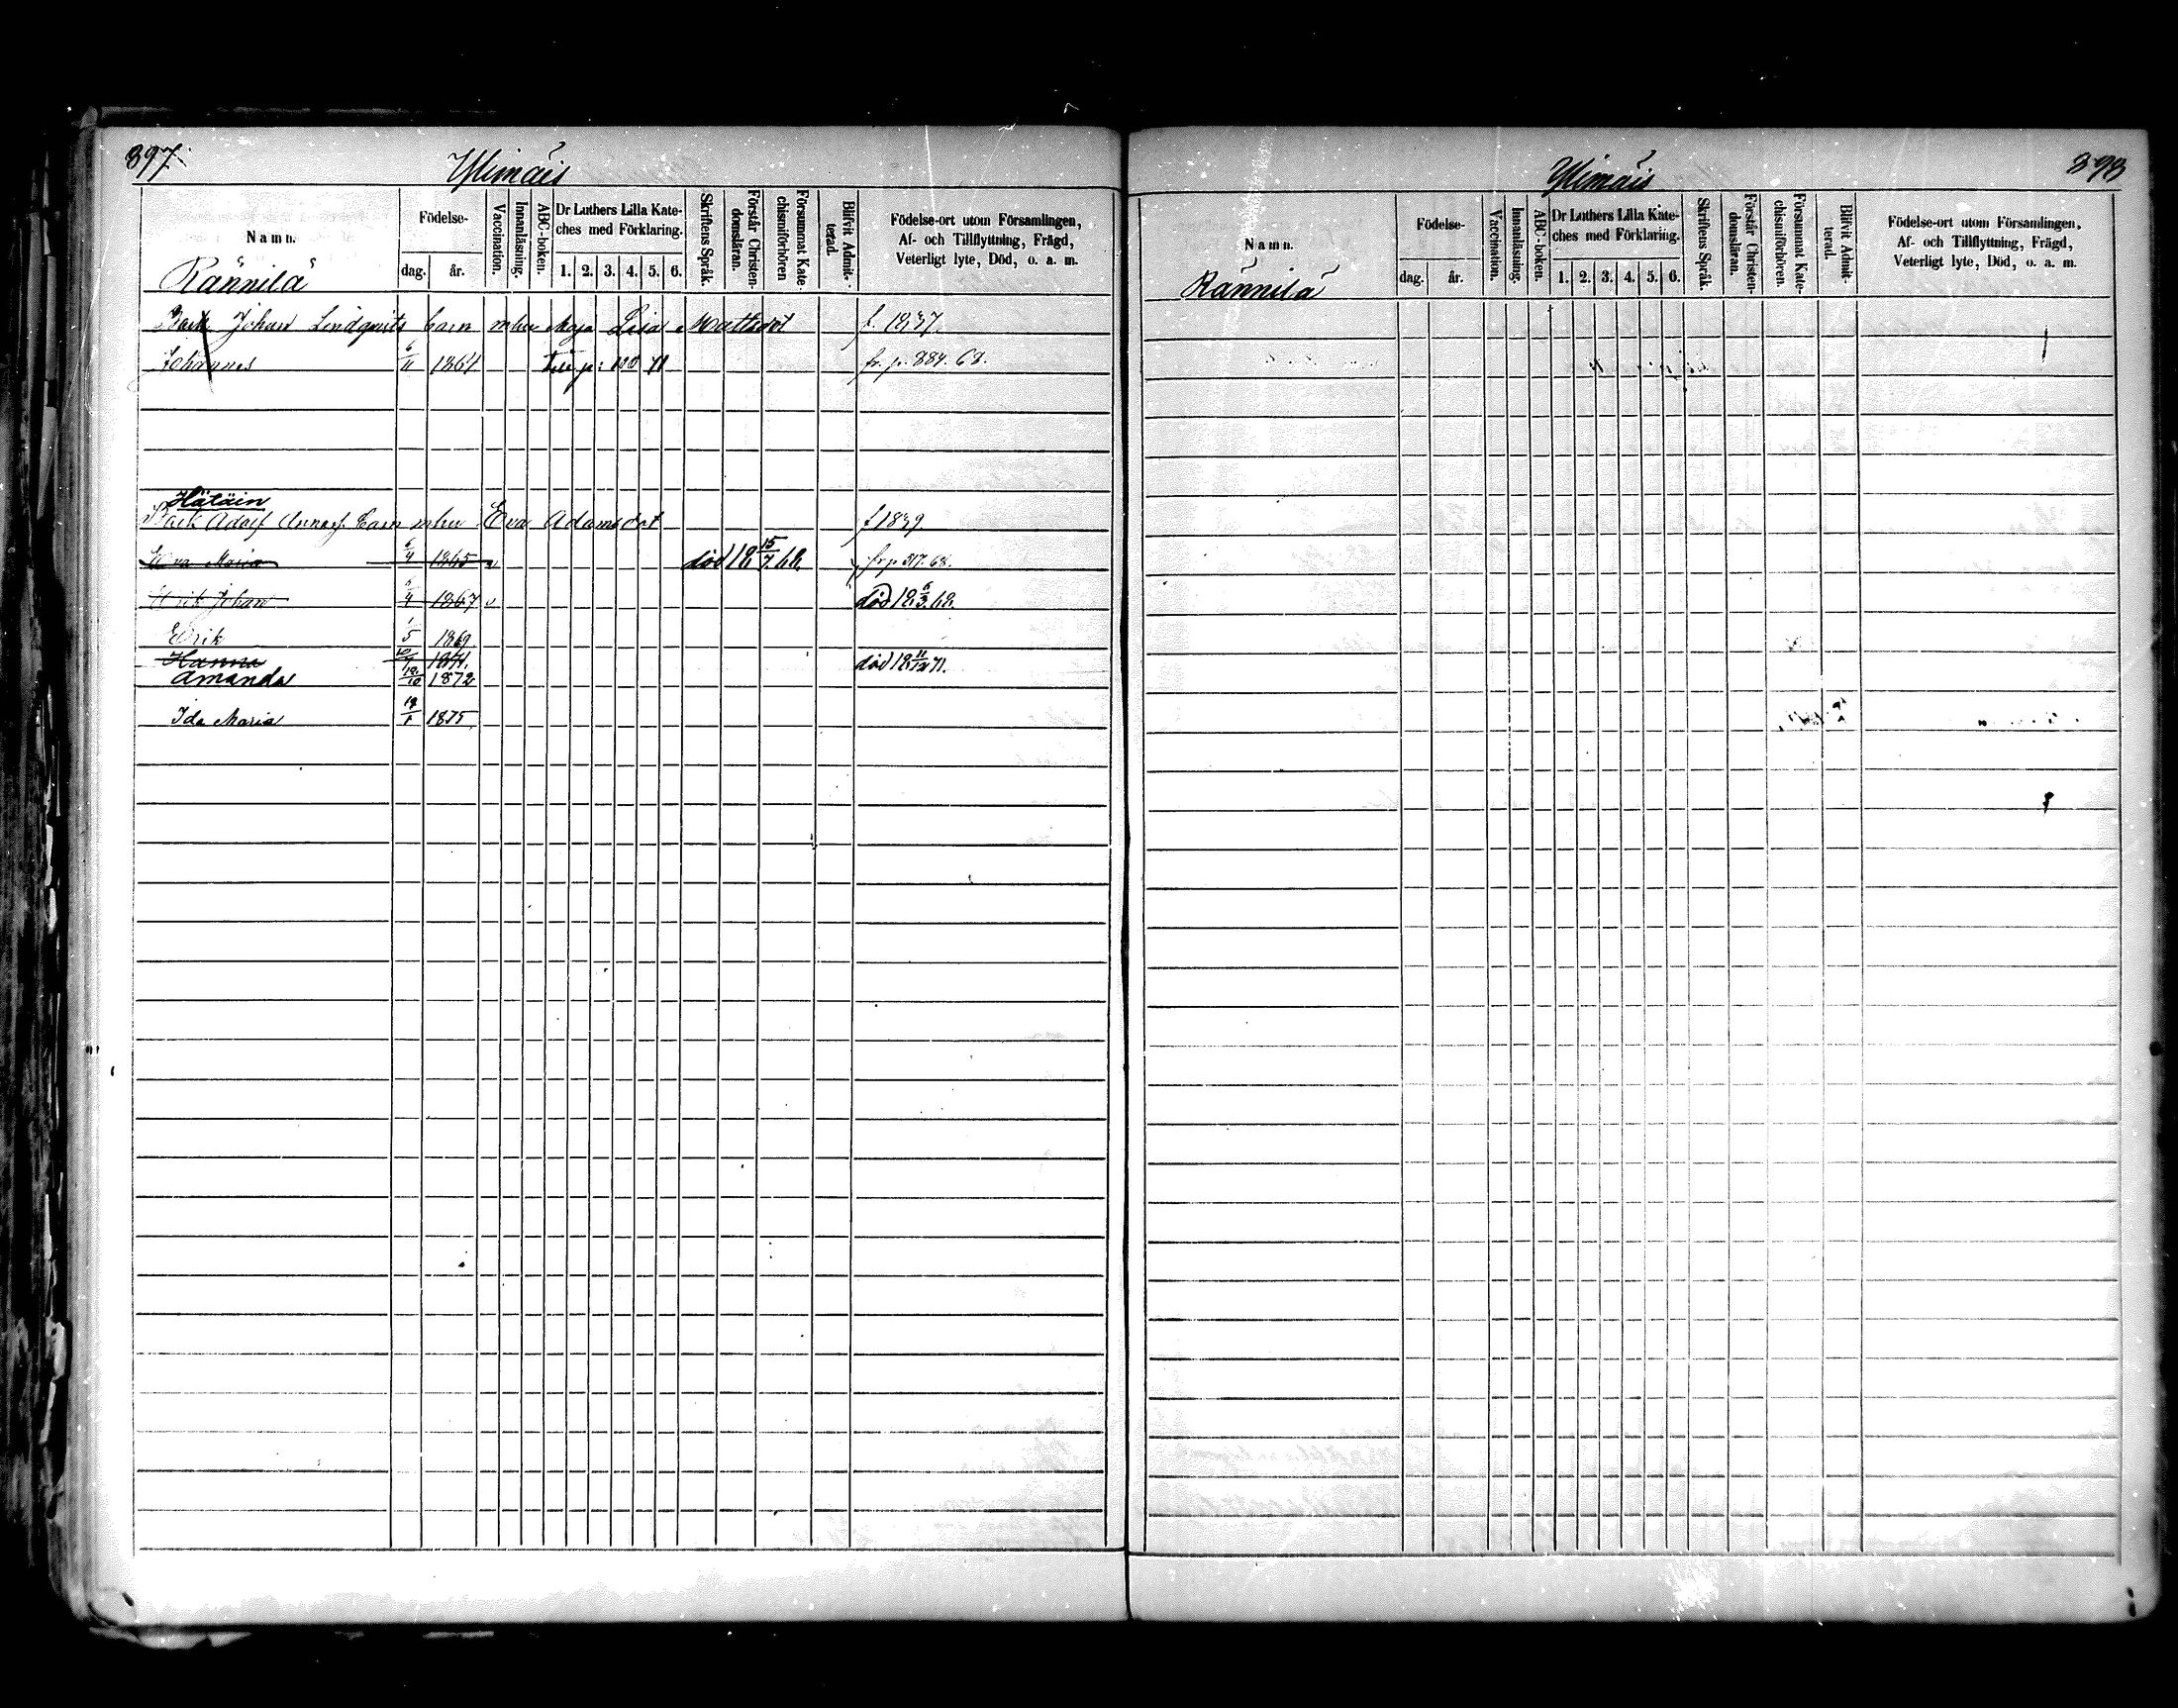 397.
Ylimäis
Namn.
Födelse-
dag.
år.
Vaccination.
Innanläsning.
ABC-boken.
Dr Luthers Lilla Kate-
ches med Förklaring.
1. 2. 3. 4. 5. 6.
Skriftens Språk.
Förstår Christen-
domsläran.
Försummat Kate-
chismiförhören
Blifvit Admit-
terad.
Födelse-ort utom Församlingen,
Af- och Tillflyttning, Frägd,
Veterligt lyte, Död, o. a. m.
Rännilä
Back Johan Lindqvists barn mhu Maja Lisa Mattsdot f. 1837.
Johannes 6/11 1864 Till p: 100 71 fr. p. 384. 68.
Hätäin
Back Adolf barn mhu Eva Adamsdot f 1839
Eva Maria 6/4 1865 v död 18 15/7 68. fr p 517. 68.
Erik Johan 1867 v död 18 6/3 68.
Erik 1/5 1869.
Hanna 1871. död 18 11/12 71.
Amanda 1872
Ida Maria 1875
Ylimäis
398
Namn.
Födelse-
dag.
år.
Vaccination.
Innanläsning.
ABC-boken.
Dr Luthers Lilla Kate-
ches med Förklaring.
1. 2. 3. 4. 5. 6.
Skriftens Språk.
Förstår Christen-
domsläran.
Försummat Kate-
chismiförhören.
Blifvit Admit-
terad.
Födelse-ort utom Församlingen,
Af- och Tillflyttning, Frägd,
Veterligt lyte, Död, o. a. m.
Rännilä